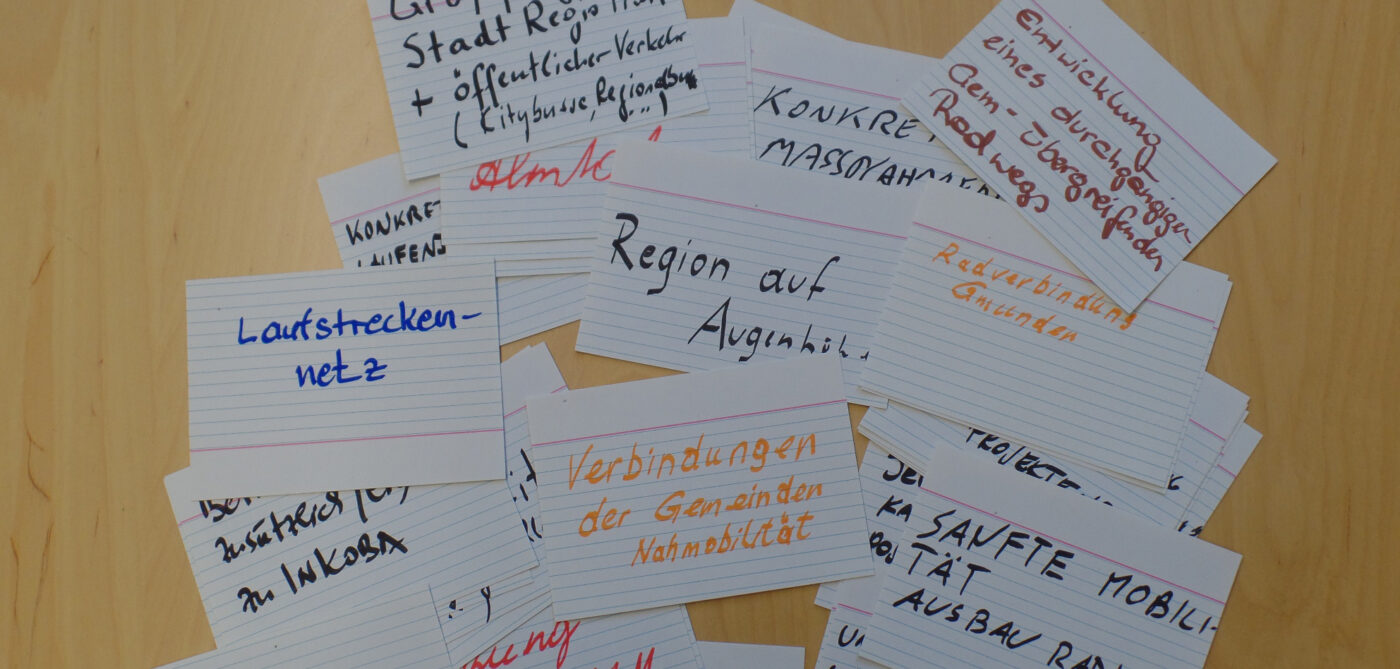 Stadt Regio
+ öffentlicher Verkehr
(Citybusse, Regionalbus
...)
KONKRE
Entwicklung
eines durchgängigen
Gem-übergreifenden
Radwegs
KONKRE-
LAUFENS
Region auf
Augenhöh
Radverbindung
Gmunden
Laufstrecken-
netz
Verbindungen
der Gemeinden
Nahmobilität
zusätzlich
zu INKOBA
PROJEKTE
KA
SANFTE MOBILI-
TÄT
AUSBAU RAD
ung